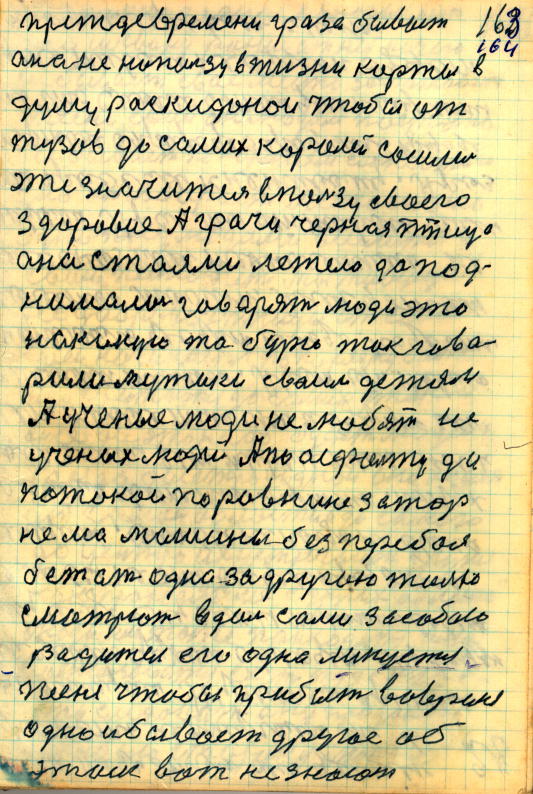 преждевремени граза бывает 163
164
ана не напользу вжизни карты в
думу раскиданои чтобы от
тузов до самих королей
эти значится впользу своего
здоровие А грачи черная птица
ана стаями летело да под-
нимались говарят люди это
накакую то бурю так гова-
рили мужики сваим детям
А ученые люди не любят не
ученых людей Апо асфалту да
по такой поровнине затор
нема машины без перебоя
бежат одна за другою
смотрют вдал сами засобою
вадител его одна
чтобы прибыт вовремя
одно бывает другое об
этом вот не знают